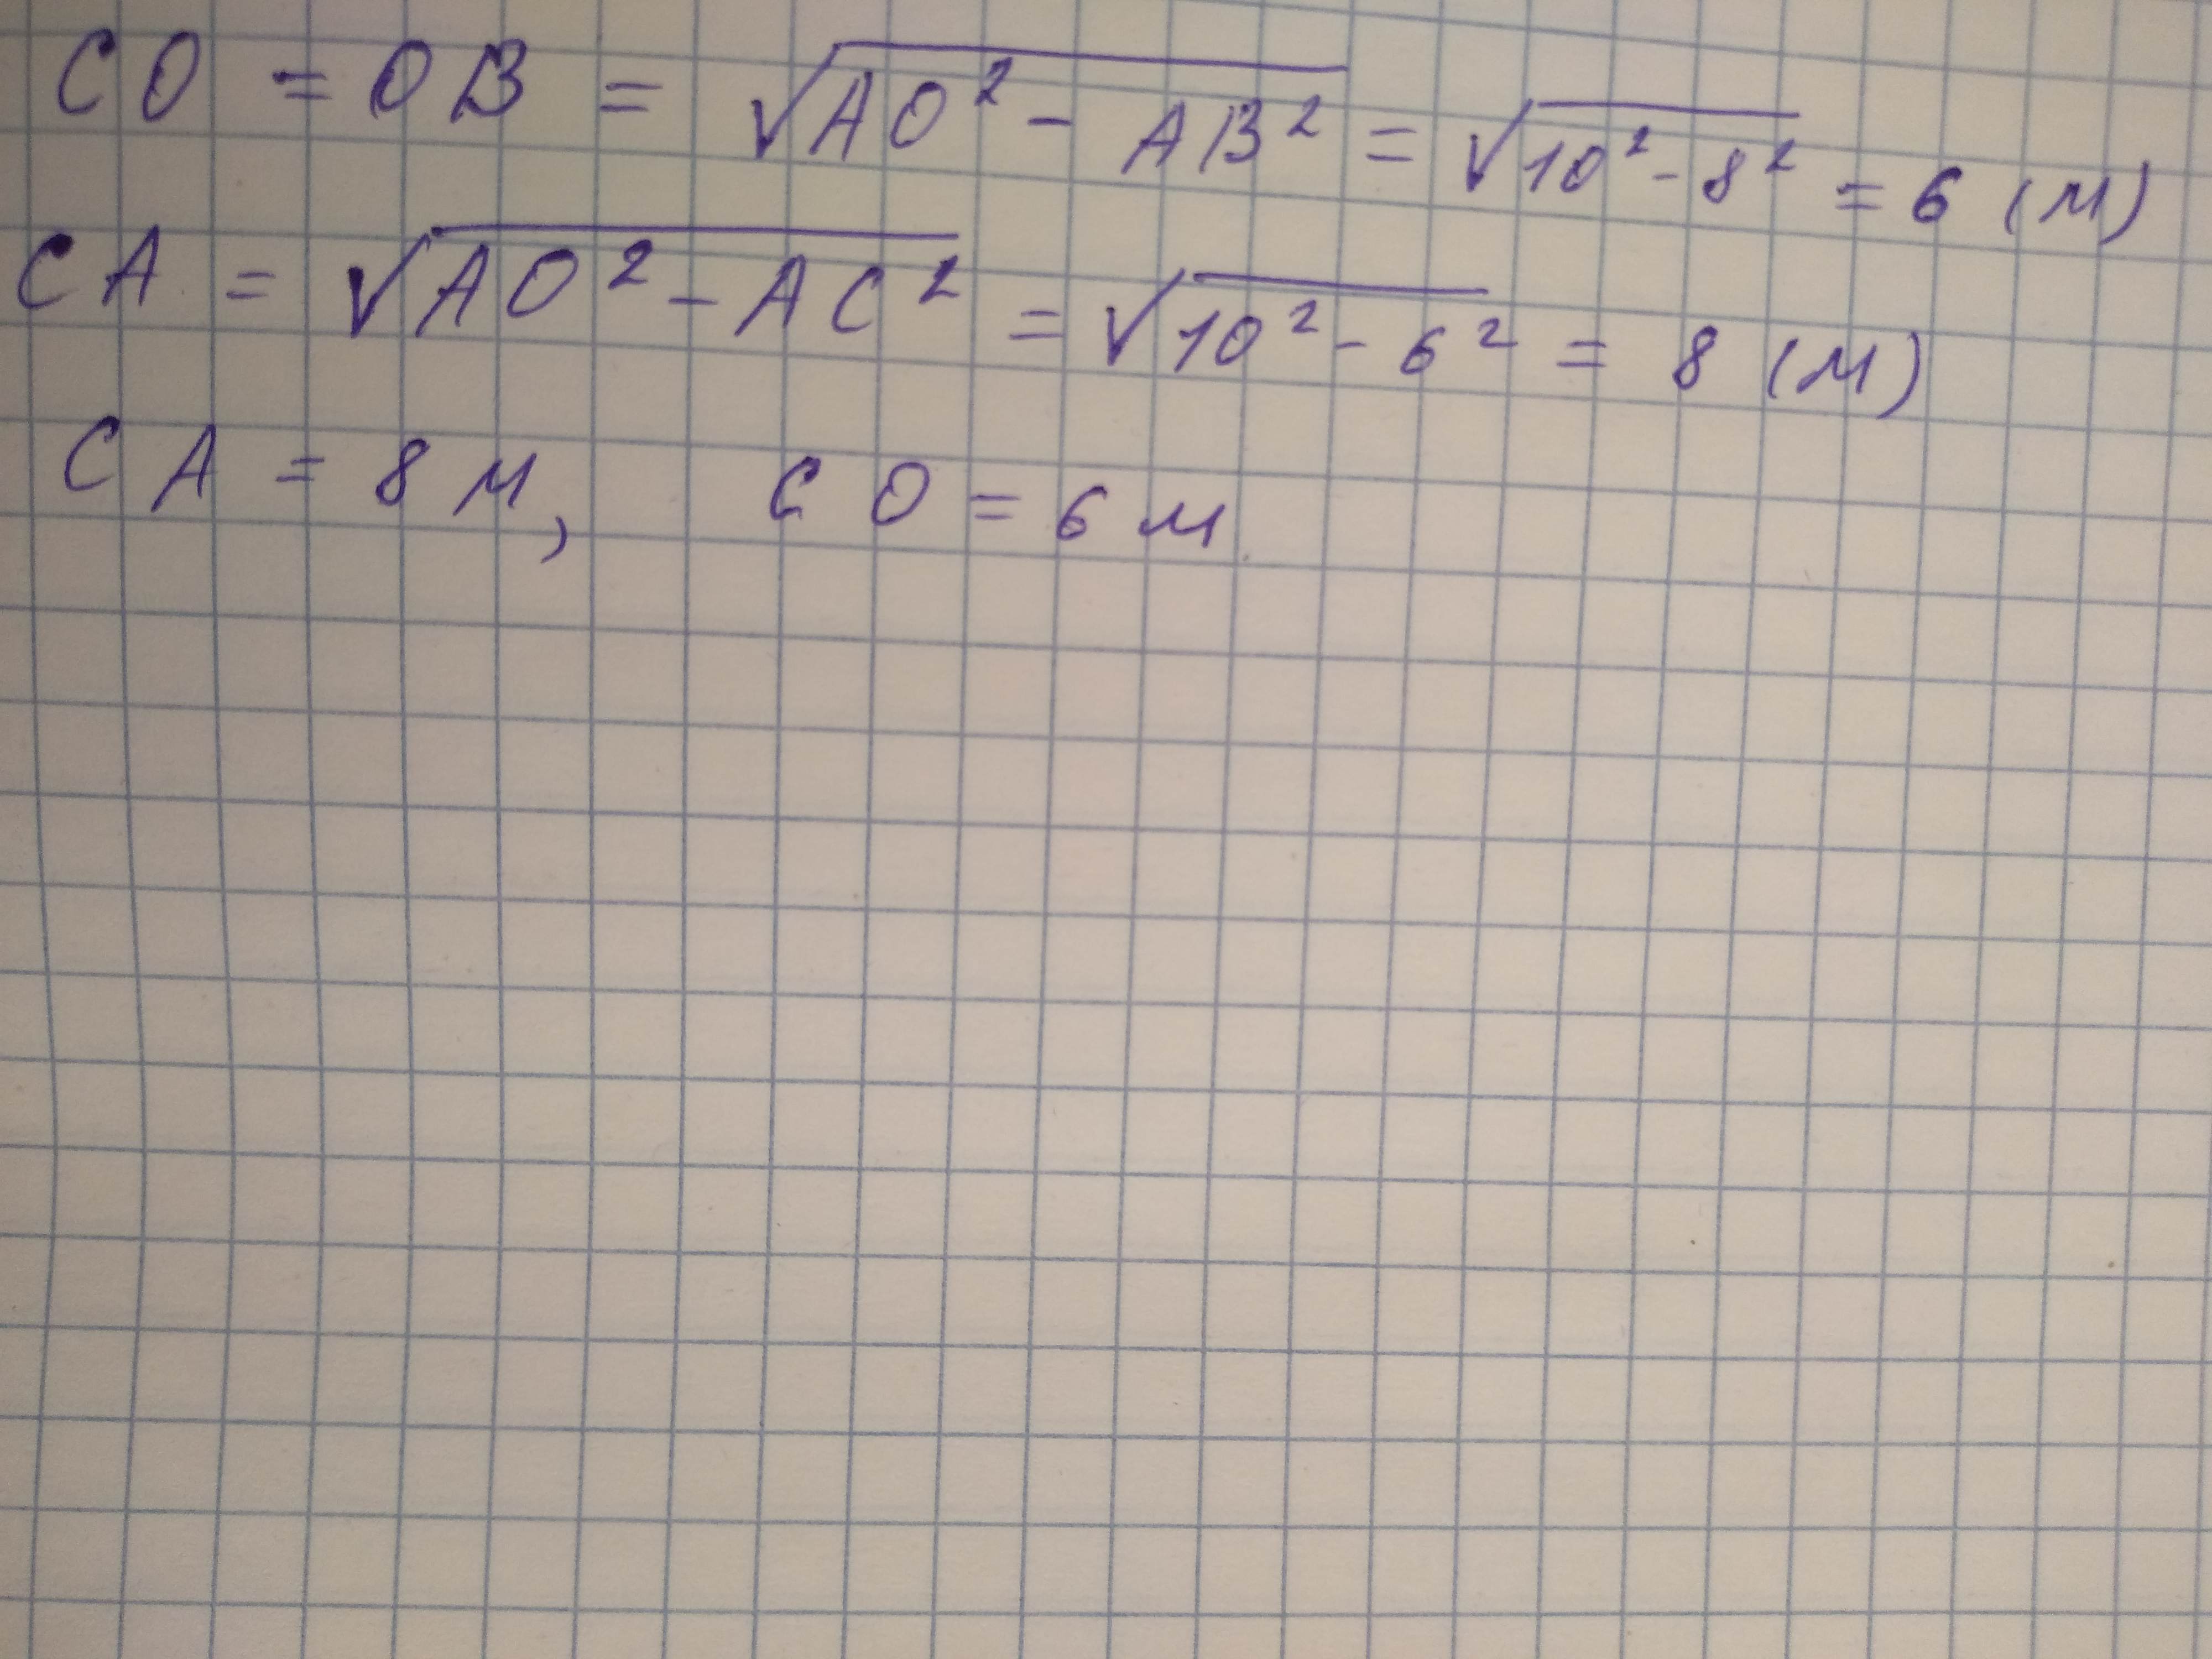 CO = OB = √AO² - AB² = √10² - 8² = 6 (м)
CA = √AO² - AC² = √10² - 6² = 8 (м)
CA = 8 м, CO = 6 м